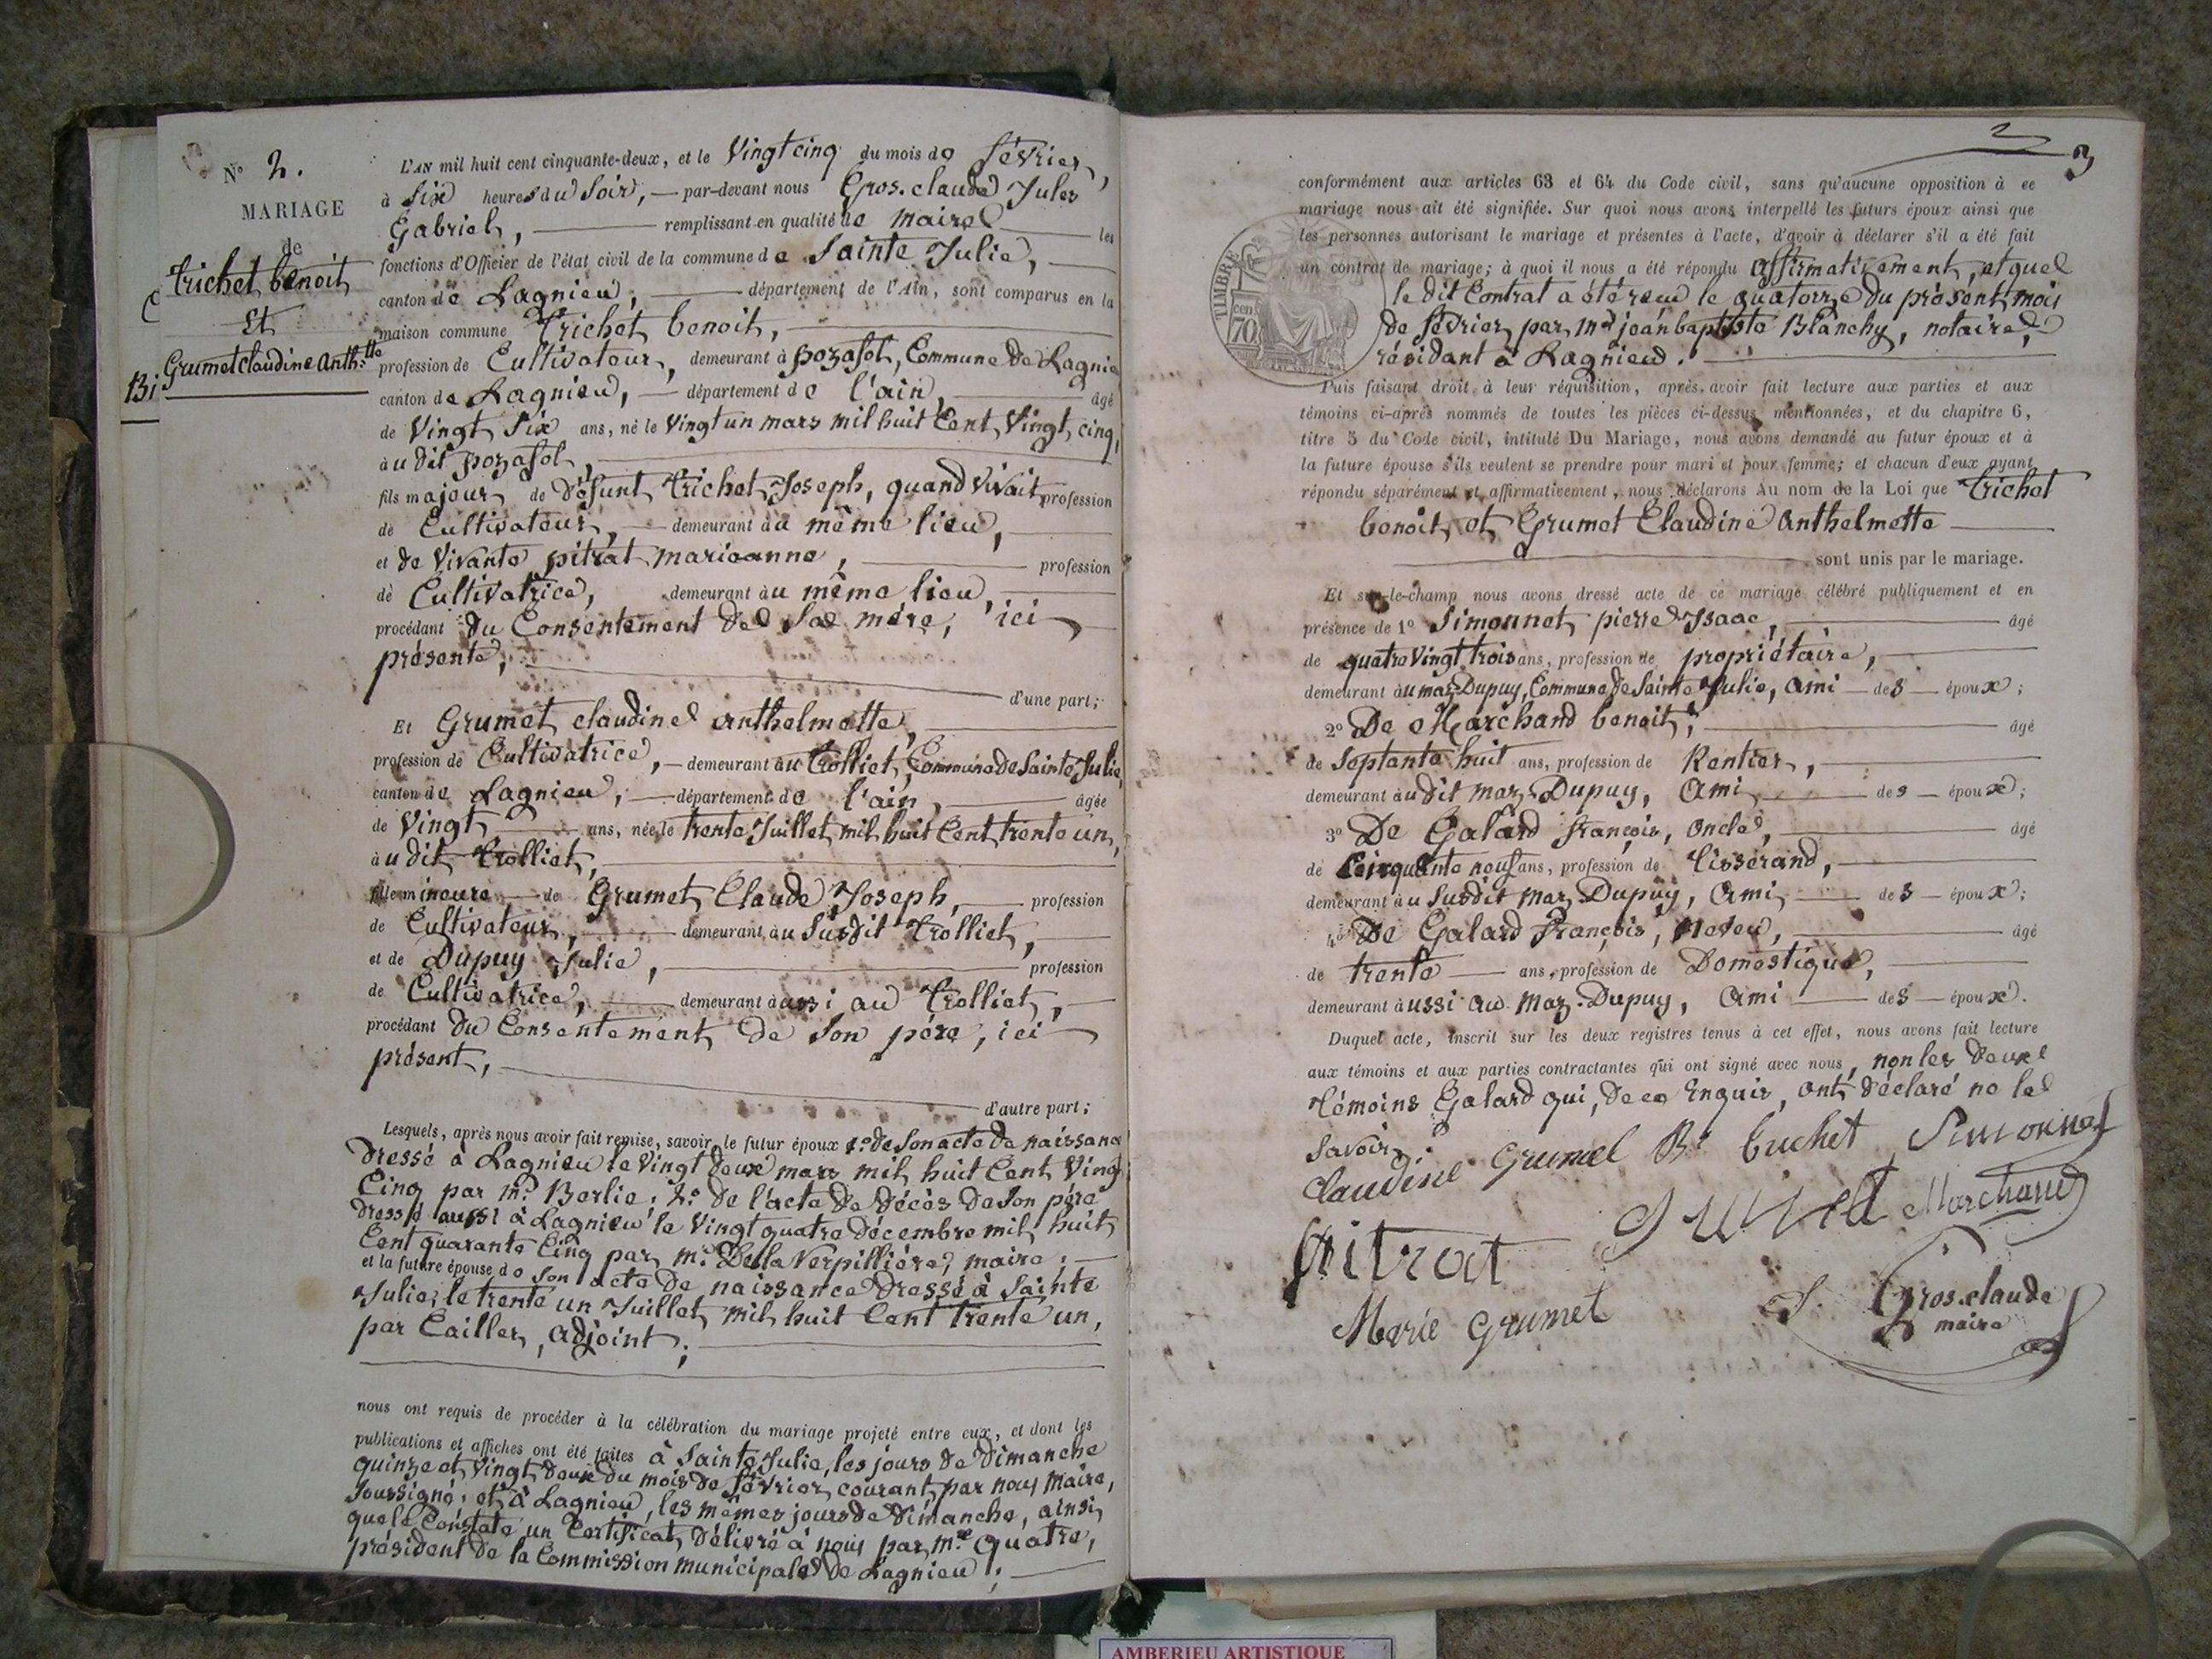 N° 2.
MARIAGE
de
Trichet benoit
Et
Grumet Claudine Anth.tte
Bi
L'AN mil huit cent cinquante-deux, et le Vingt cinq du mois de février,
à Six heures du Soir, — par-devant nous Gros.claude Jules
Gabriel, — remplissant en qualité de maire — les
fonctions d'Officier de l'état civil de la commune de Sainte Julie, —
canton de Lagnieu, — département de l'Ain, sont comparus en la
maison commune Trichet benoit, —
profession de Cultivateur, demeurant à pozafol, Commune de Lagnie
canton de Lagnieu, — département de l'ain, — âgé
de Vingt Six ans, né le Vingt un mars mil huit Cent Vingt cinq,
au dit pozafol, —
fils majeur de Défunt Trichet Joseph, quand Vivait profession
de Cultivateur, — demeurant au même lieu, —
et de Vivante pitrat marieanne, — profession
de Cultivatrice, demeurant au même lieu, —
procédant du Consentement de Sa mère, ici
présente, —
d'une part;
Et Grumet claudine anthelmette, —
profession de Cultivatrice, — demeurant au Trolliet, Commune de Sainte Julie,
canton de Lagnieu, — département de l'ain, — âgée
de Vingt — ans, née le trente Juillet mil huit Cent trente un,
au dit Trolliet, —
fille mineure — de Grumet Claude Joseph, — profession
de Cultivateur, — demeurant au Susdit Trolliet, —
et de Dupuy Julie, — profession
de Cultivatrice, — demeurant aussi au Trolliet, —
procédant du Consentement de Son père, ici
présent, —
d'autre part;
Lesquels, après nous avoir fait remise, savoir, le futur époux 1° de Son acte de naissance
dressé à Lagnieu le Vingt deux mars mil huit Cent Vingt
Cinq par mr. Berlie; 2° de l'acte de décès de Son père
dressé aussi à Lagnieu le Vingt quatre décembre mil huit
Cent quarante Cinq par mr. Della Verpillière, maire; —
et la future épouse de Son acte de naissance dressé à Sainte
Julie, le trente un Juillet mil huit Cent trente un,
par Cailler, adjoint; —
nous ont requis de procéder à la célébration du mariage projeté entre eux, et dont les
publications et affiches ont été faites à Sainte Julie, les jours de dimanche
quinze et vingt deux du mois de février courant par nous maire,
soussigné; et à Lagnieu, les mêmes jours de dimanche, ainsi
que le Constate un Certificat délivré à nous par mr. Quatre,
président de la Commission municipale de Lagnieu; —
3
conformément aux articles 63 et 64 du Code civil, sans qu'aucune opposition à ce
mariage nous ait été signifiée. Sur quoi nous avons interpellé les futurs époux ainsi que
les personnes autorisant le mariage et présentes à l'acte, d'avoir à déclarer s'il a été fait
un contrat de mariage; à quoi il nous a été répondu affirmativement, et que
le dit Contrat a été reçu le quatorze du présent mois
de février par mre jean baptiste Blanchy, notaire,
résidant à Lagnieu. —
TIMBRE
70 cen
Puis faisant droit à leur réquisition, après avoir fait lecture aux parties et aux
témoins ci-après nommés de toutes les pièces ci-dessus mentionnées, et du chapitre 6,
titre 5 du Code civil, intitulé Du Mariage, nous avons demandé au futur époux et à
la future épouse s'ils veulent se prendre pour mari et pour femme; et chacun d'eux ayant
répondu séparément et affirmativement, nous déclarons Au nom de la Loi que Trichet
benoit et Grumet Claudine anthelmette —
— sont unis par le mariage.
Et sur-le-champ nous avons dressé acte de ce mariage célébré publiquement et en
présence de 1° Simonnet pierre Isaac, — âgé
de quatre Vingt trois ans, profession de propriétaire, —
demeurant au maz-Dupuy, Commune de Sainte Julie, ami — des — époux;
2° De Marchand benoit, — âgé
de Septante huit ans, profession de Rentier, —
demeurant au dit maz-Dupuy, ami — des — époux;
3° De Galard françois, oncle, — âgé
de Cinquante neuf ans, profession de Tisserand, —
demeurant au Susdit maz Dupuy, ami — des — époux;
4° De Galard françois, Neveu, — âgé
de trente — ans, profession de Domestique, —
demeurant aussi au maz-Dupuy, ami — des — époux.
Duquel acte, inscrit sur les deux registres tenus à cet effet, nous avons fait lecture
aux témoins et aux parties contractantes qui ont signé avec nous, non les deux
témoins Galard qui, de ce Enquis, ont déclaré ne le
savoir.
Claudine Grumet Bt Trichet Simonnet
Grumet Marchand
Pitrat
Marie Grumet
J. Gros.claude
maire
AMBERIEU ARTISTIQUE